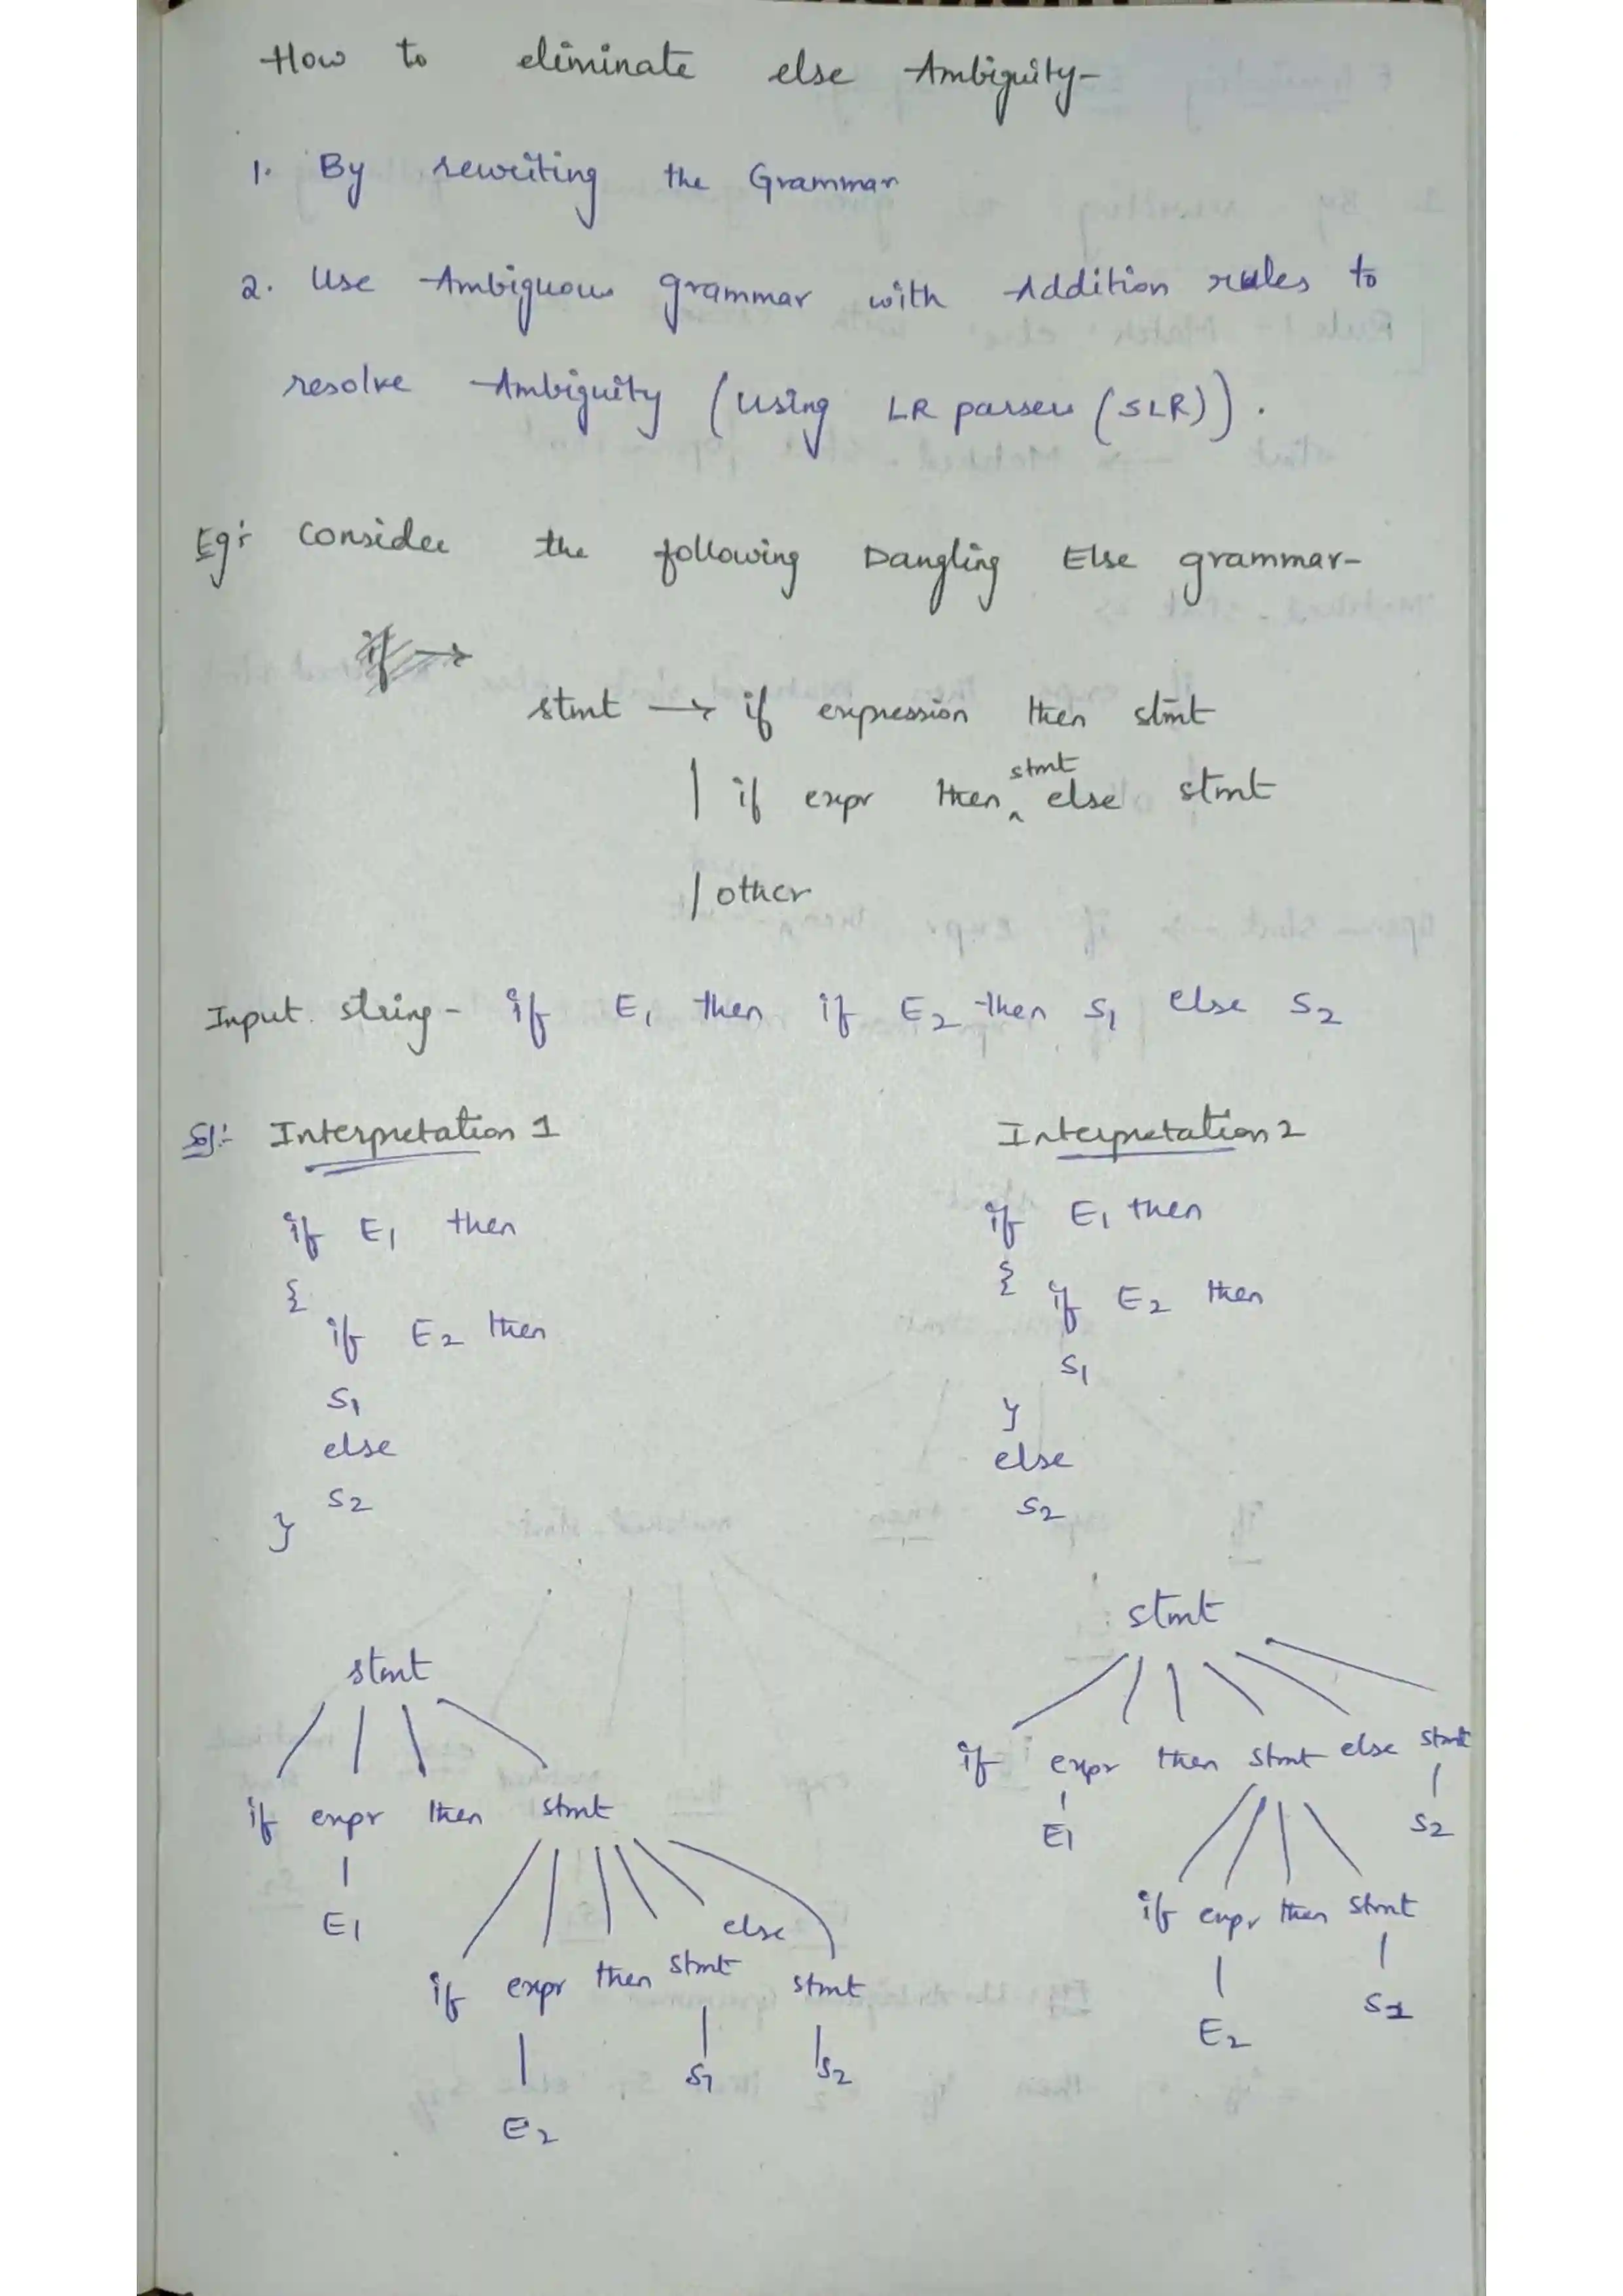 How to eliminate else Ambiguity-
1. By rewriting the Grammar
2. Use Ambiguous grammar with Addition rules to
resolve Ambiguity (Using LR parser (SLR)).
Eg:- Consider the following Dangling Else grammar-
if →
stmt → if expression then stmt
| if expr then stmt else stmt
| other
Input string- if E1 then if E2 then S1 else S2
Sol:- Interpretation 1
if E1 then
{
if E2 then
S1
else
S2
}
Interpretation 2
if E1 then
{ if E2 then
S1
}
else
S2
stmt
if expr then stmt
E1
else
if expr then stmt stmt
S1 S2
E2
stmt
if expr then stmt else stmt
E1 S2
if expr then stmt
E2 S1